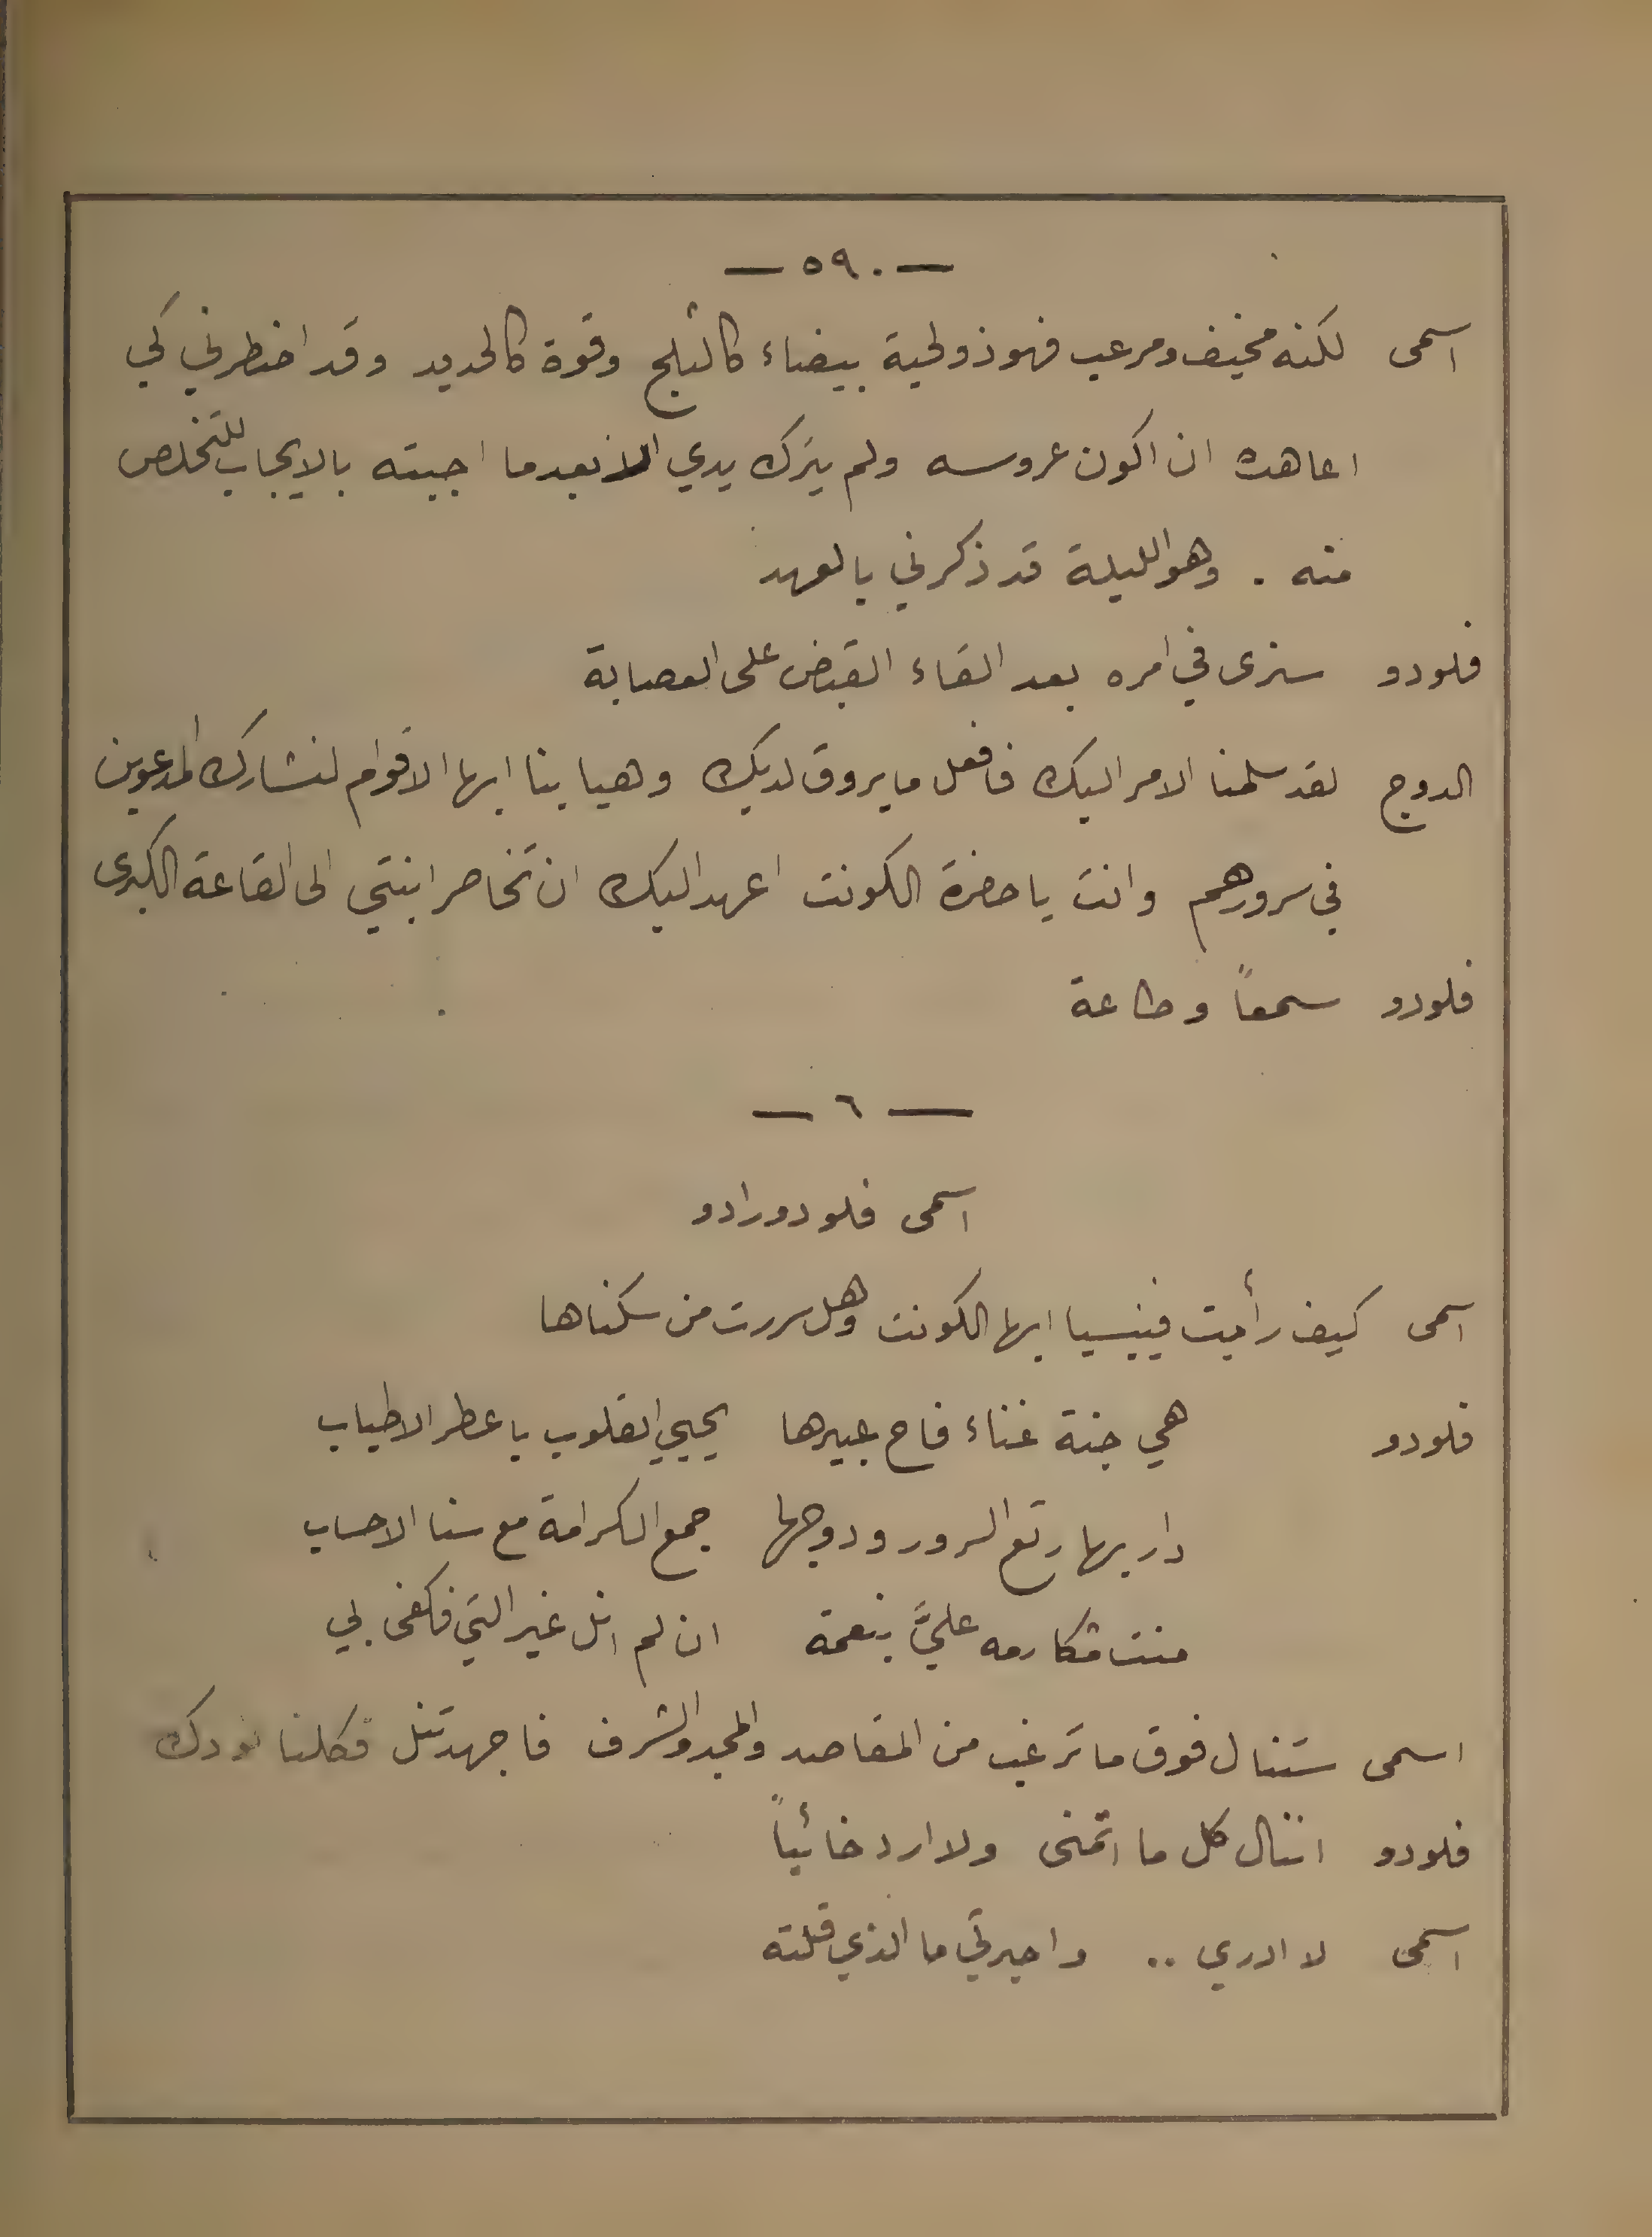 — ٥٩٠ —
اسمى لكنه مخيف ومرعب فهو ذو لحية بيضاء كالثلج وقوة كالحديد وقد اضطرني لكي
اعاهده ان اكون عروسه ولم يترك يدي الا بعدما اجبته بالايجاب للتخلص
منه . وهو الليلة قد ذكرني بالعهد
فلودو سنرى في امره بعد القاء القبض على العصابة
الدوج لقد سلمنا الامر اليك فافعل ما يروق لديك وهيا بنا ايها الاقوام لنشارك المدعوين
في سرورهم وانت يا حضرة الكونت اعهد اليك ان تخاصر ابنتي الى القاعة الكبرى
فلودو سمعاً وطاعة
— ٦ —
اسمى فلودورادو
اسمى كيف رأيت فينيسيا ايها الكونت وهل سررت من سكناها
فلودو هي جنة غناء فاح عبيرها يحيي القلوب باعطر الاطياب
دار بها رتع السرور ودوجها جمع الكرامة مع سنا الاحساب
منت مكارمه عليَّ بنعمة ان لم انل غير التي فكفى بي
اسمى ستنال فوق ما ترغب من المقاصد والمجد والشرف فاجهد تنل فكلنا نودك
فلودو اننال كل ما اتمنى ولا ارد خائباً
اسمى لا ادري .. واحيرتي ما الذي قلته